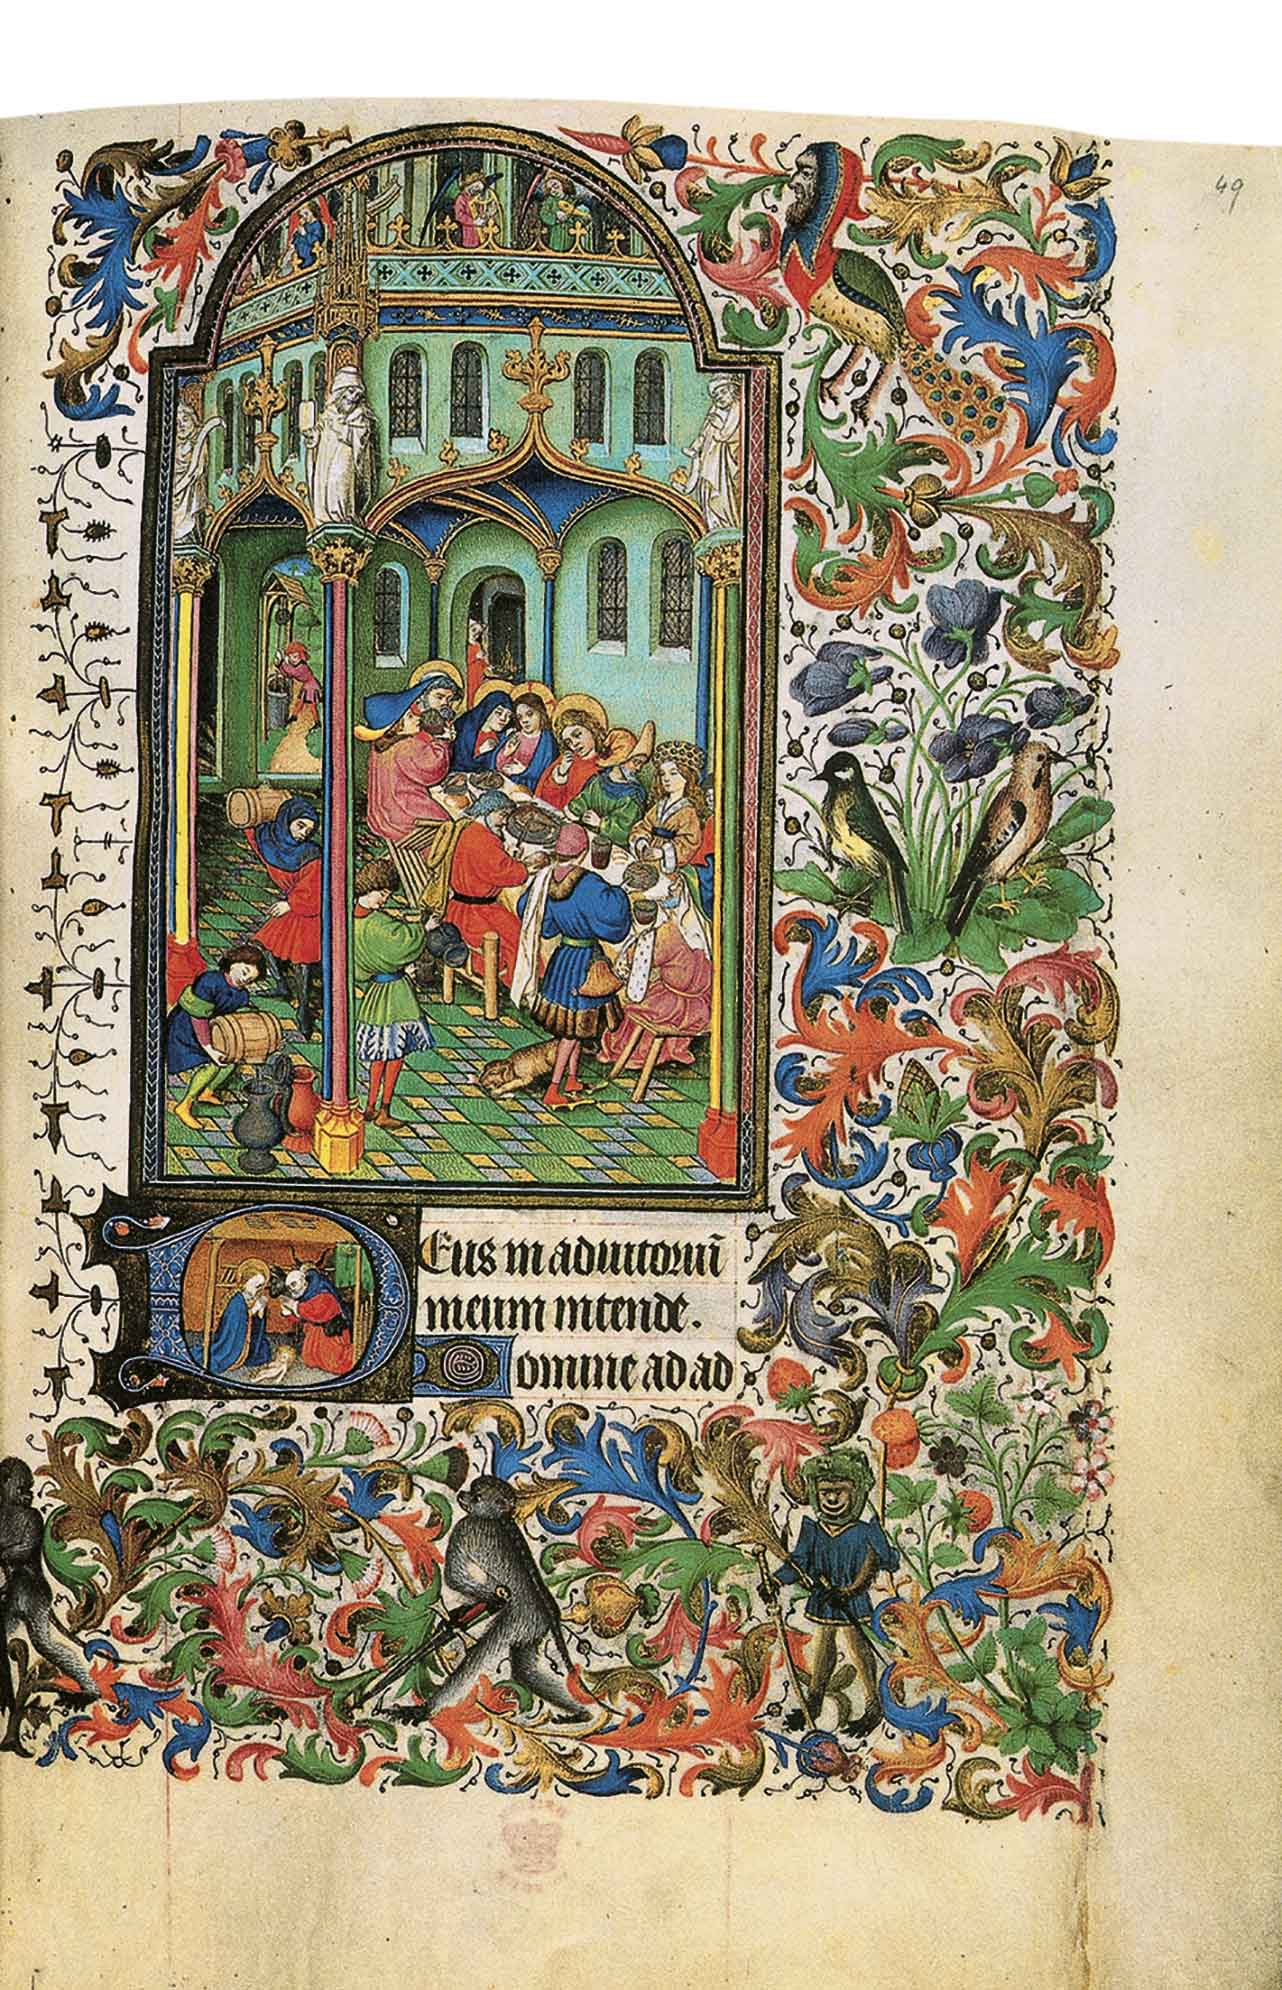 49
Deus in adiutoriū
meum intende.
Domine ad ad